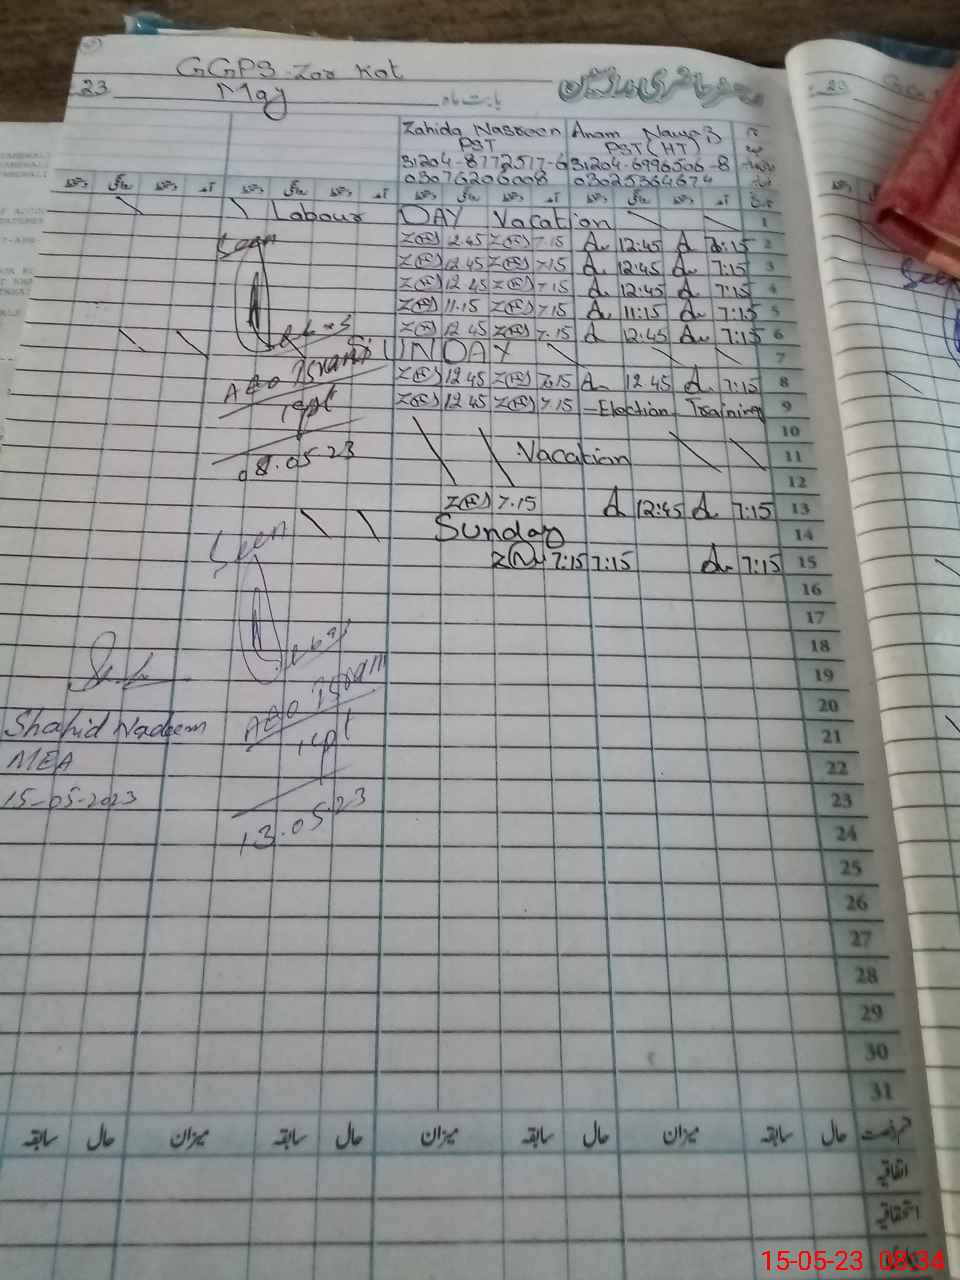 GGPS Zor Kot
23 May بابت ماہ
Zahida Nasreen Anam
PST PST (HT)
31204-8172517-6 31204-6996506-8
03076206008 03025364674
Labour DAY Vacation 1
Z(N) 12.45 Z(N) 7.15 A 12:45 A 7:15 2
Z(N) 12.45 Z(N) 7.15 A 12:45 A 7:15 3
Z(N) 12.45 Z(N) 7.15 A 12:45 A 7:15 4
Z(N) 11.15 Z(N) 7.15 A 11:15 A 7:15 5
Z(N) 12.45 Z(N) 7.15 A 12:45 A 7:15 6
SUNDAY 7
Z(N) 12.45 Z(N) 7.15 A 12.45 A 7:15 8
Z(N) 12.45 Z(N) 7.15 Election Training 9
10
Vacation 11
12
Z(N) 7.15 A 12:45 A 7:15 13
Sunday 14
Z(N) 7:15 7:15 A 7:15 15
16
17
18
19
20
21
22
23
24
25
26
27
28
29
30
31
Seen
AEO
08.05.23
Seen
AEO
13.05.23
Shahid Nadeem
MEA
15-05-2023
سابقہ حال میزان سابقہ حال میزان سابقہ حال میزان سابقہ حال
اتفاقیہ
استحقاقیہ
15-05-23 08:34